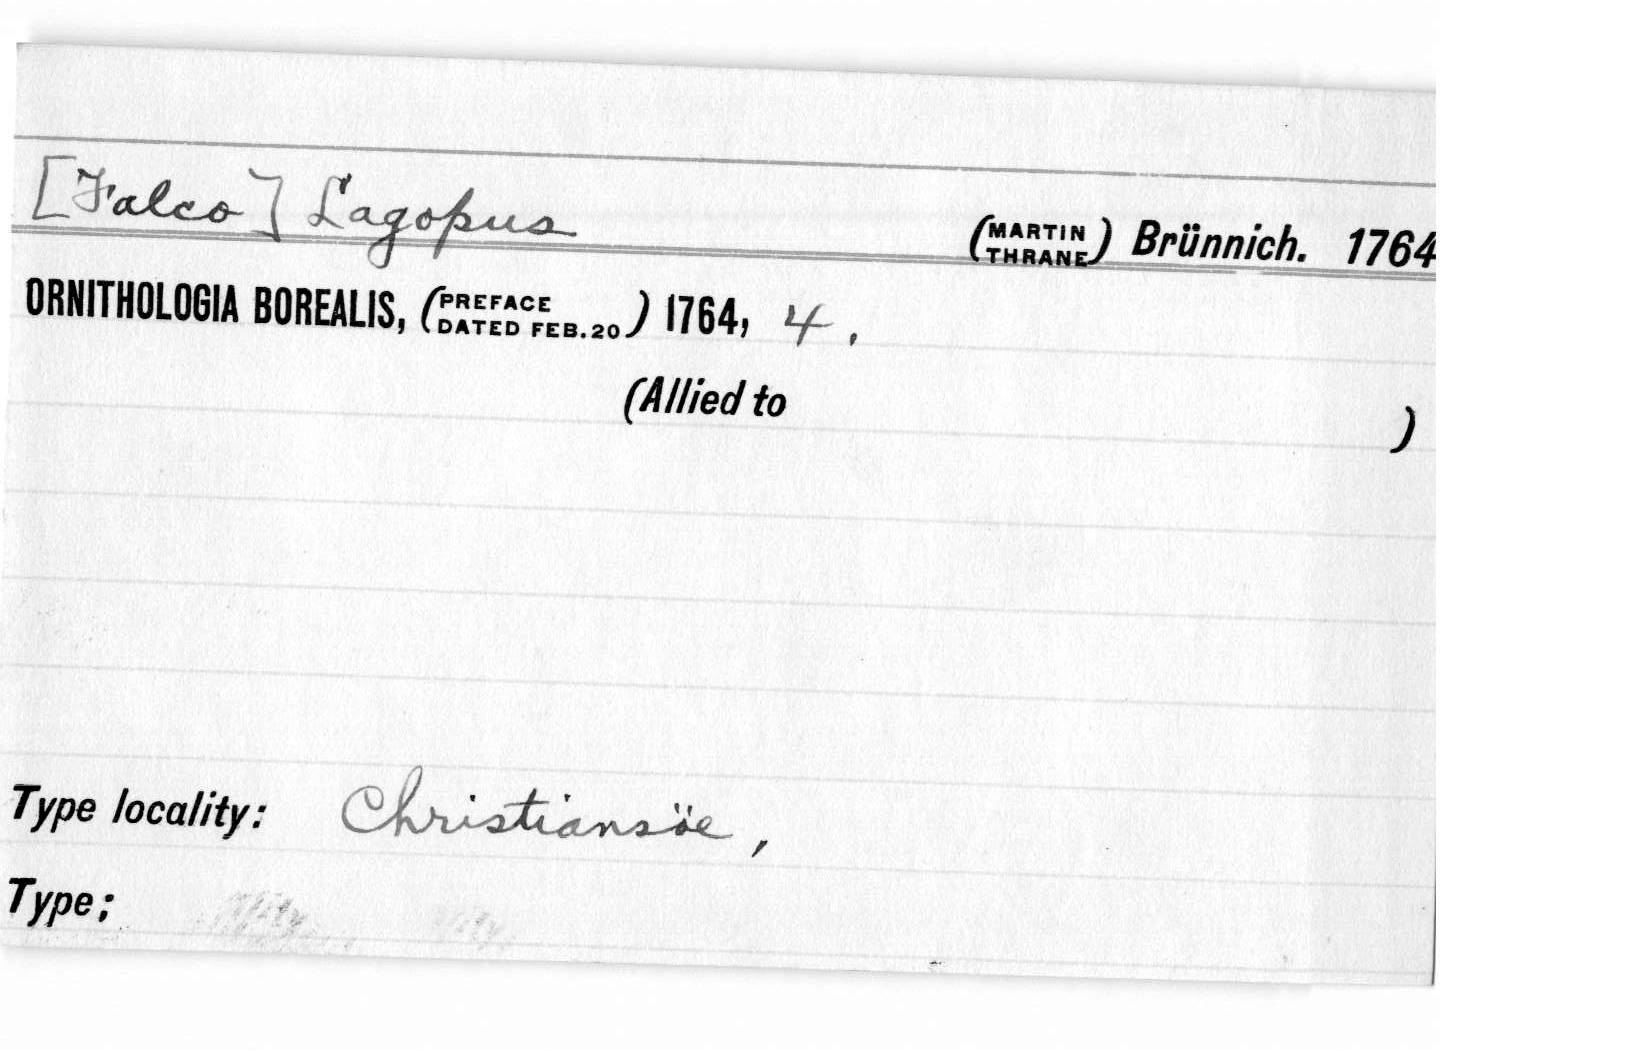 [Falco] Lagopus (MARTIN THRANE) Brünnich. 1764
ORNITHOLOGIA BOREALIS, (PREFACE DATED FEB.20) 1764, 4.
(Allied to )
Type locality: Christiansöe,
Type: